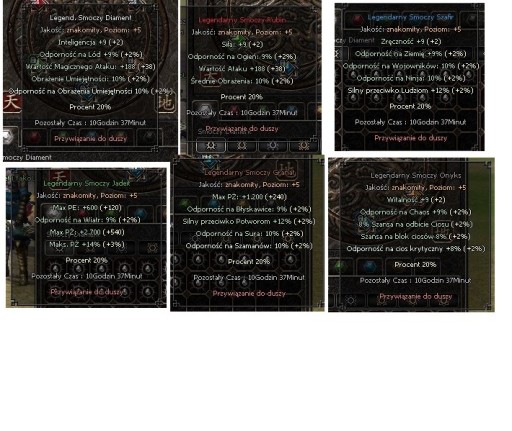 Legend. Smoczy Diament
Jakość: znakomity, Poziom: +5
Inteligencja: +9 (+2)
Odporność na Lód +9% (+2%)
Wartość Magicznego Ataku: +188 (+38)
Obrażenie Umiejętności: 10% (+2%)
Odporność na Obrażenia Umiejętności 10% (+2%)
Procent 20%
Pozostały Czas : 10Godzin 37Minut
Przywiązanie do duszy
moczy Diament
Legendarny Smoczy Rubin
Jakość: znakomity, Poziom: +5
Siła: +9 (+2)
Odporność na Ogień: 9% (+2%)
Wartość Ataku +188 (+38)
Średnie Obrażenia: 10% (+2%)
Procent 20%
Pozostały Czas : 10Godzin 37Minut
Przywiązanie do duszy
Legendarny Smoczy Szafir
Jakość: znakomity, Poziom: +5
Zręczność +9 (+2)
Odporność na Ziemię +9% (+2%)
Odporność na Wojowników: 10% (+2%)
Odporność na Ninja: 10% (+2%)
Silny przeciwko Ludziom +12% (+2%)
Procent 20%
Pozostały Czas : 10Godzin 37Minut
Przywiązanie do duszy
Legendarny Smoczy Jadeit
Jakość: znakomity, Poziom: +5
Max PE: +600 (+120)
Odporność na Wiatr: 9% (+2%)
Max PŻ: +2.700 (+540)
Maks. PŻ +14% (+3%)
Procent 20%
Pozostały Czas : 10Godzin 37Minut
Przywiązanie do duszy
Legendarny Smoczy Granat
Jakość: znakomity, Poziom: +5
Max PŻ: +1.200 (+240)
Odporność na Błyskawice: 9% (+2%)
Silny przeciwko Potworom +12% (+2%)
Odporność na Sura: 10% (+2%)
Odporność na Szamanów: 10% (+2%)
Procent 20%
Pozostały Czas : 10Godzin 37Minut
Przywiązanie do duszy
Legendarny Smoczy Onyks
Jakość: znakomity, Poziom: +5
Witalność +9 (+2)
Odporność na Chaos +9% (+2%)
8% Szansa na odbicie Ciosu (+2%)
Szansa na blok ciosów 8% (+2%)
Odporność na cios krytyczny +8% (+2%)
Procent 20%
Pozostały Czas : 10Godzin 37Minut
Przywiązanie do duszy